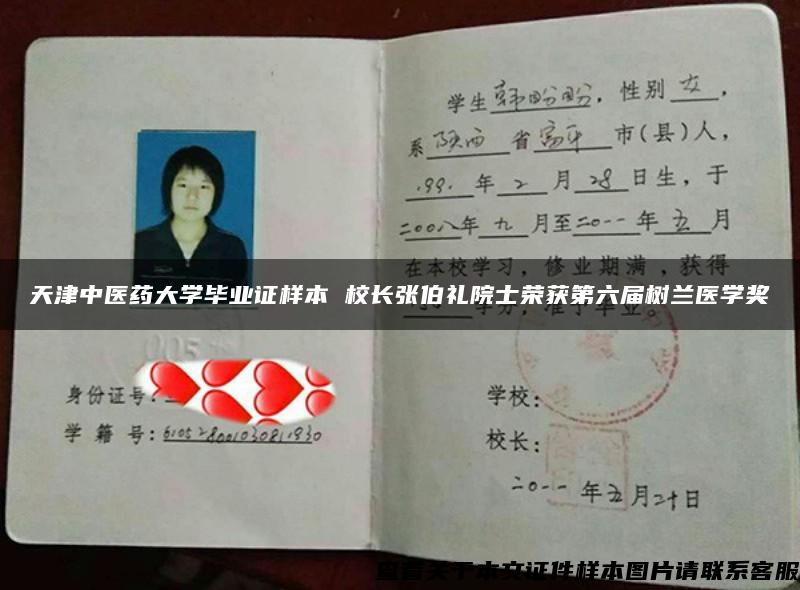 学生韩盼盼，性别女，
系陕西省富平市(县)人，
1991年2月28日生，于
二00八年九月至二0一一年五月
在本校学习，修业期满，获得
天津中医药大学毕业证样本 校长张伯礼院士荣获第六届树兰医学奖
身份证号：
学籍号：
学校：
校长：
二0一一年五月二十日
查看关于本文证件样本图片请联系客服